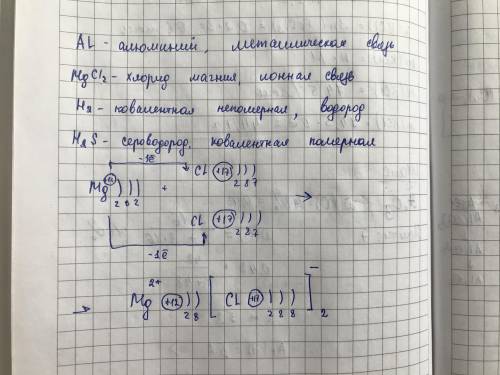 AL - алюминий, металлическая связь
MgCl2 - хлорид магния, ионная связь
H2 - ковалентная неполярная, водород
H2S - сероводород, ковалентная полярная
-1ē
CL +17 ) ) )
2 8 7
Mg +12 ) ) ) + →
2 8 2
CL +17 ) ) )
2 8 7
-1ē
→ Mg 2+ +12 ) ) [ CL +17 ) ) ) ]⁻ 2
2 8 2 8 8